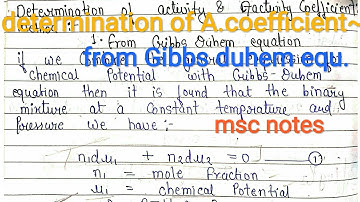 Determination of activity & Activity Coefficient
determination of A.coefficient~
1. from Gibbs Duhem equation
from Gibbs duhem equ.
if we the
chemical Potential with Gibbs-Duhem
equation then it is found that the binary
mixture at a Constant temperature and
Pressure we have :-
msc notes
n₁dμ₁ + n₂dμ₂ = 0 ①
n₁ = mole fraction
μ₁ = chemical Potential